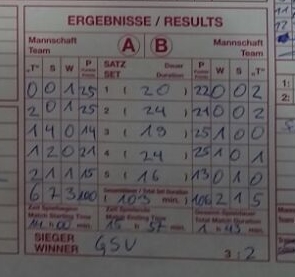 ERGEBNISSE / RESULTS
Mannschaft Team A B Mannschaft Team
"T" S W P SATZ SET Dauer Duration P W S "T"
0 0 1 25 1 ( 20 ) 22 0 0 2
2 0 1 25 2 ( 24 ) 21 0 0 2
1 4 0 14 3 ( 19 ) 25 1 0 0
1 2 0 21 4 ( 24 ) 25 1 0 1
2 1 1 15 5 ( 16 ) 13 0 1 0
6 7 3 100 ( 103 min. ) 106 2 1 5
Match Starting Time Match Ending Time Total Match Duration
14 h 00 min. 15 h 57 min. 1 h 43 min.
SIEGER WINNER GSV 3 : 2